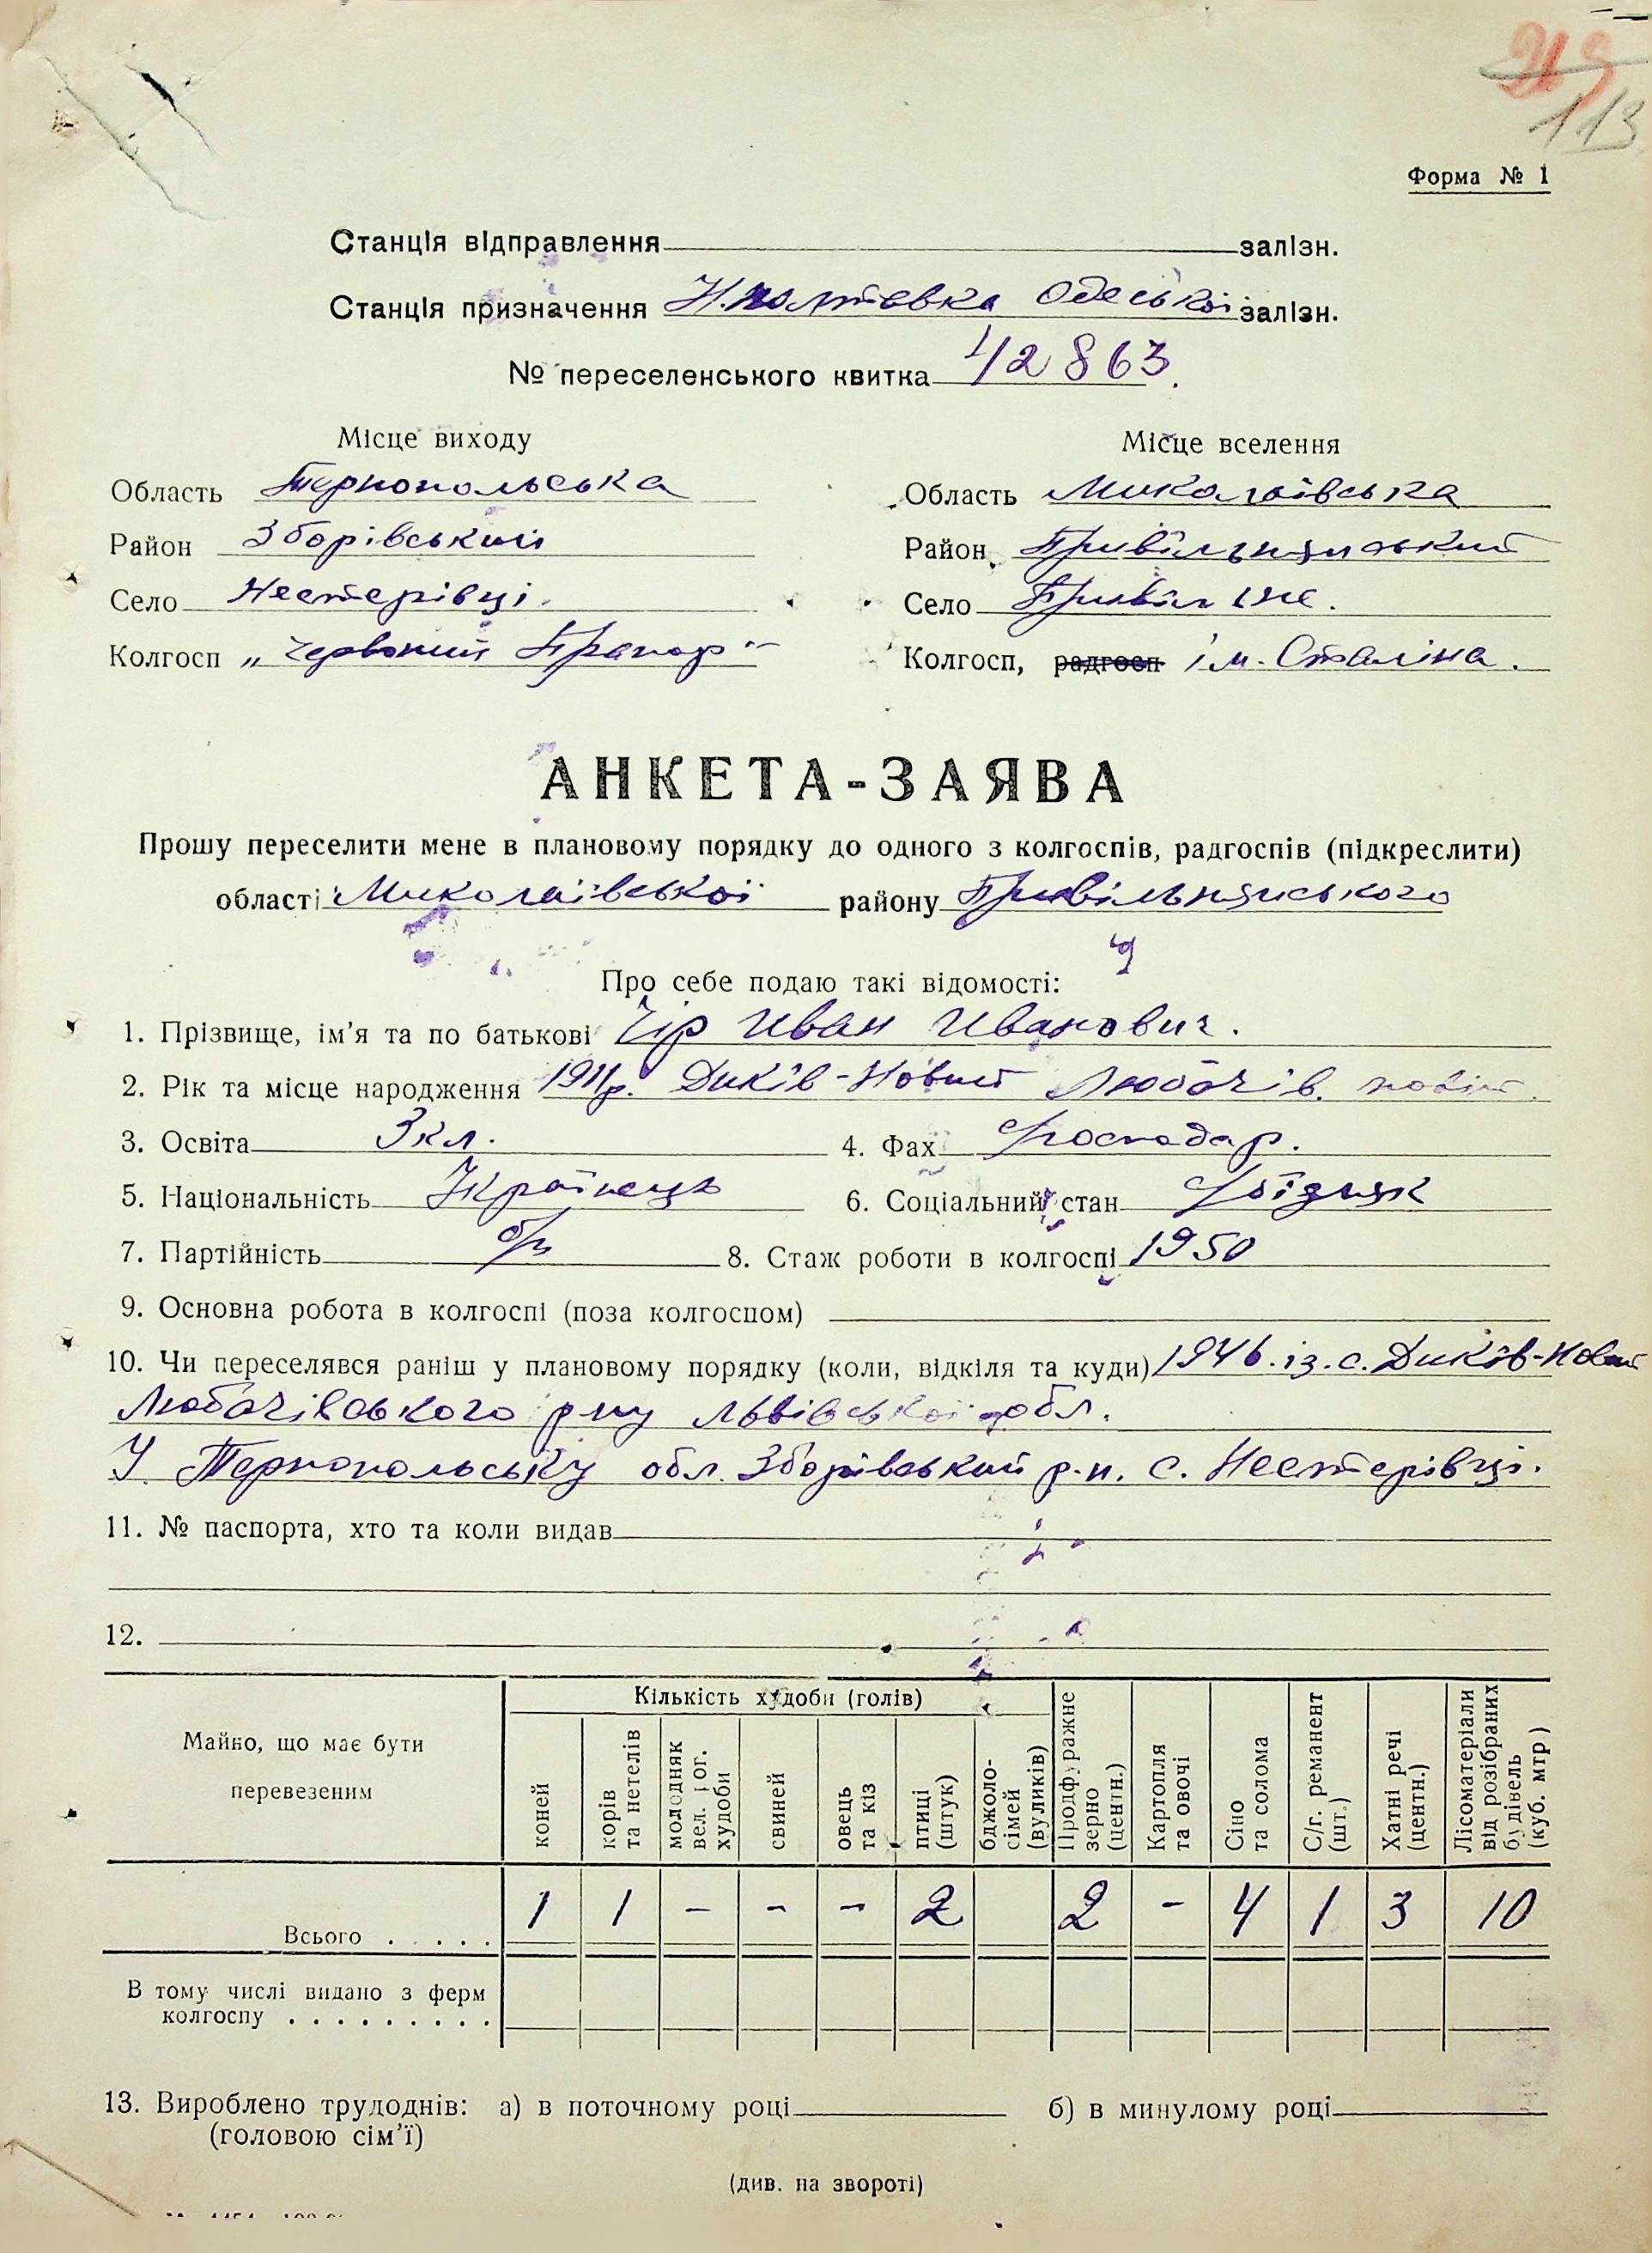 219
113
Форма № 1
Станція відправлення залізн.
Станція призначення Н.Полтавка Одеської залізн.
№ переселенського квитка 42863.
Місце виходу
Місце вселення
Область Тернопольська
Область Миколаївська
Район Зборівський
Район Привільнянський
Село Нестерівці.
Село Привільне.
Колгосп „Червоний Прапор"
Колгосп, радгосп ім. Сталіна.
АНКЕТА-ЗАЯВА
Прошу переселити мене в плановому порядку до одного з колгоспів, радгоспів (підкреслити)
області Миколаївської району Привільнянського
Про себе подаю такі відомості:
1. Прізвище, ім'я та по батькові Чір Иван Иванович.
2. Рік та місце народження 1911р. Диків-Новий Любачів. повіт.
3. Освіта 3 кл. 4. Фах Господар.
5. Національність Українець 6. Соціальний стан бідняк
7. Партійність б/п 8. Стаж роботи в колгоспі 1950
9. Основна робота в колгоспі (поза колгоспом)
10. Чи переселявся раніш у плановому порядку (коли, відкіля та куди) 1946. із. с. Диків-Новий
Любачівського р-ну Львівської обл.
У Тернопольську обл. Зборівський р-н. с. Нестерівці.
11. № паспорта, хто та коли видав
12.
Майно, що має бути перевезеним
Кількість худоби (голів)
коней
корів та нетелів
молодняк вел. рог. худоби
свиней
овець та кіз
птиці (штук)
бджоло-сімей (вуликів)
Продфуражне зерно (центн.)
Картопля та овочі
Сіно та солома
С/г. реманент (шт.)
Хатні речі (центн.)
Лісоматеріали від розібраних будівель (куб. мтр)
Всього . . . . . 1 1 – – – 2 2 – 4 1 3 10
В тому числі видано з ферм
колгоспу . . . . . . . . .
13. Вироблено трудоднів: а) в поточному році б) в минулому році
(головою сім'ї)
(див. на звороті)